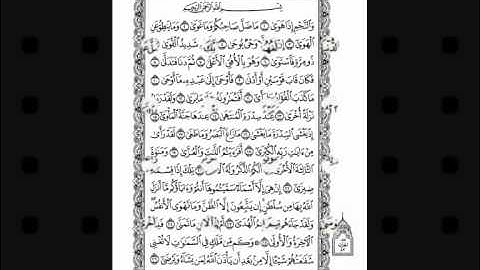 بسم الله الرحمن الرحيم
والنجم إذا هوى ١ ما ضل صاحبكم وما غوى ٢ وما ينطق عن
الهوى ٣ إن وحي يوحى ٤ شديد القوى ٥
ذو مرة فاستوى ٦ وهو بالأفق الأعلى ٧ ثم دنا فتدلى ٨
فكان قاب قوسين أو أدنى ٩ فأوحى إلى عبده ما أوحى ١٠
ما كذب الفؤاد رأى ١١ أفتمارونه ما يرى ١٢ ولقد رءاه
نزلة أخرى ١٣ عند سدرة المنتهى ١٤ عندها جنة المأوى ١٥
إذ يغشى السدرة ما يغشى ١٦ ما زاغ البصر وما طغى ١٧ لقد رأى
من ءايت ربه الكبرى ١٨ أفرءيتم اللت والعزى ١٩ ومنوة
الثالثة الأخرى ٢٠ ألكم الذكر وله الأنثى ٢١ تلك إذا قسمة
ضيزى ٢٢ إن هي إلا أسماء سميتموها أنتم وءاباؤكم ما أنزل
الله بها من سلطن إن يتبعون إلا الظن وما تهوى الأنفس
ولقد جاءهم الهدى ٢٣ أم للإنسن ما تمنى ٢٤
الآخرة والأولى ٢٥ وكم من ملك في السموت لا تغني
شفعتهم شيئا إلا من بعد أن يأذن الله لمن يشاء ويرضى ٢٦